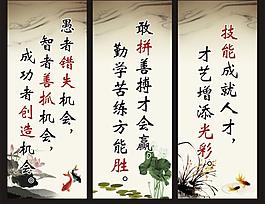 技能成就人才，
才艺增添光彩。
敢拼善搏才会赢，
勤学苦练方能胜。
愚者错失机会，
智者善抓机会，
成功者创造机会。